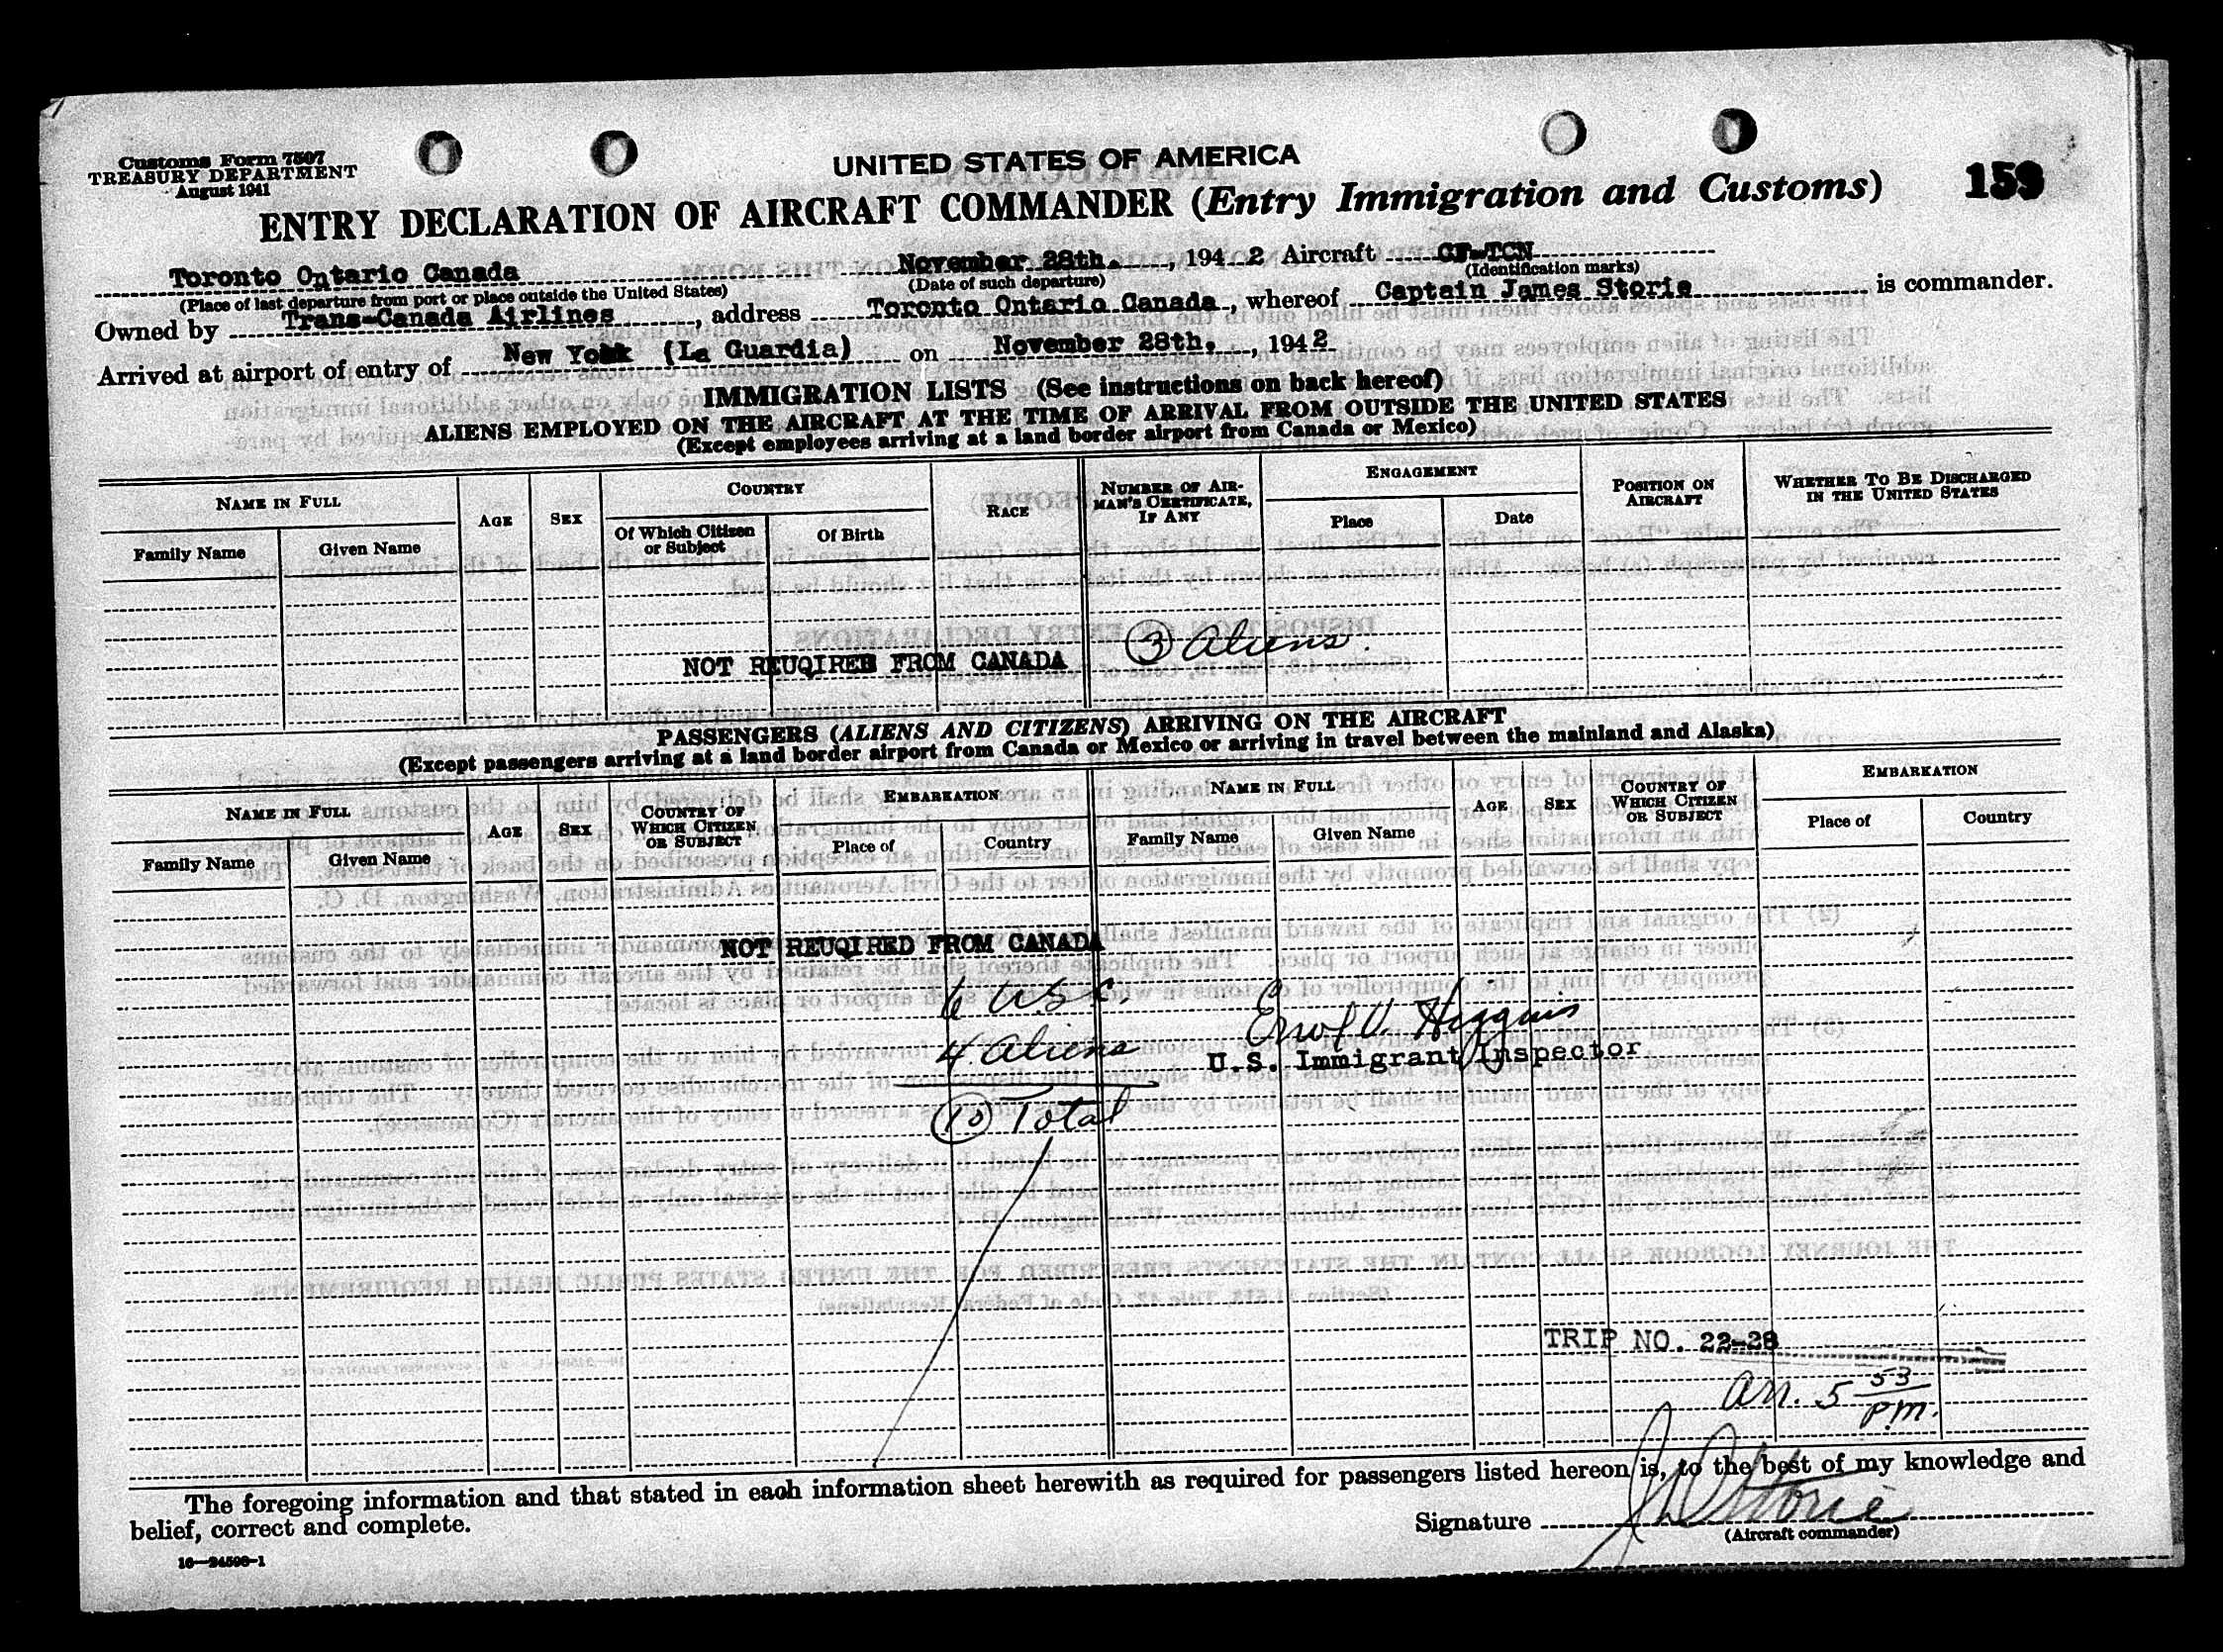 Customs Form 7507
TREASURY DEPARTMENT
August 1941
UNITED STATES OF AMERICA
159
ENTRY DECLARATION OF AIRCRAFT COMMANDER (Entry Immigration and Customs)
Toronto Ontario Canada November 28th. , 194 2 Aircraft CF-TCN
(Place of last departure from port or place outside the United States) (Date of such departure) (Identification marks)
Owned by Trans-Canada Airlines , address Toronto Ontario Canada , whereof Captain James Storie is commander.
Arrived at airport of entry of New York (La Guardia) on November 28th. , 194 2
IMMIGRATION LISTS (See instructions on back hereof)
ALIENS EMPLOYED ON THE AIRCRAFT AT THE TIME OF ARRIVAL FROM OUTSIDE THE UNITED STATES
(Except employees arriving at a land border airport from Canada or Mexico)
NAME IN FULL AGE SEX COUNTRY RACE NUMBER OF AIRMAN'S CERTIFICATE, IF ANY ENGAGEMENT POSITION ON AIRCRAFT WHETHER TO BE DISCHARGED IN THE UNITED STATES
Family Name Given Name Of Which Citizen or Subject Of Birth Place Date
NOT REUQIRED FROM CANADA 3 Aliens.
PASSENGERS (ALIENS AND CITIZENS) ARRIVING ON THE AIRCRAFT
(Except passengers arriving at a land border airport from Canada or Mexico or arriving in travel between the mainland and Alaska)
NAME IN FULL AGE SEX COUNTRY OF WHICH CITIZEN OR SUBJECT EMBARKATION NAME IN FULL AGE SEX COUNTRY OF WHICH CITIZEN OR SUBJECT EMBARKATION
Family Name Given Name Place of Country Family Name Given Name Place of Country
NOT REUQIRED FROM CANADA
6 U.S.C.
Errol V. Higgins
4 Aliens
U.S. Immigrant Inspector
10 Total
TRIP NO. 22-28
Arr. 5 53 P.M.
The foregoing information and that stated in each information sheet herewith as required for passengers listed hereon is, to the best of my knowledge and
belief, correct and complete.
Signature J Storie
(Aircraft commander)
16—24598-1